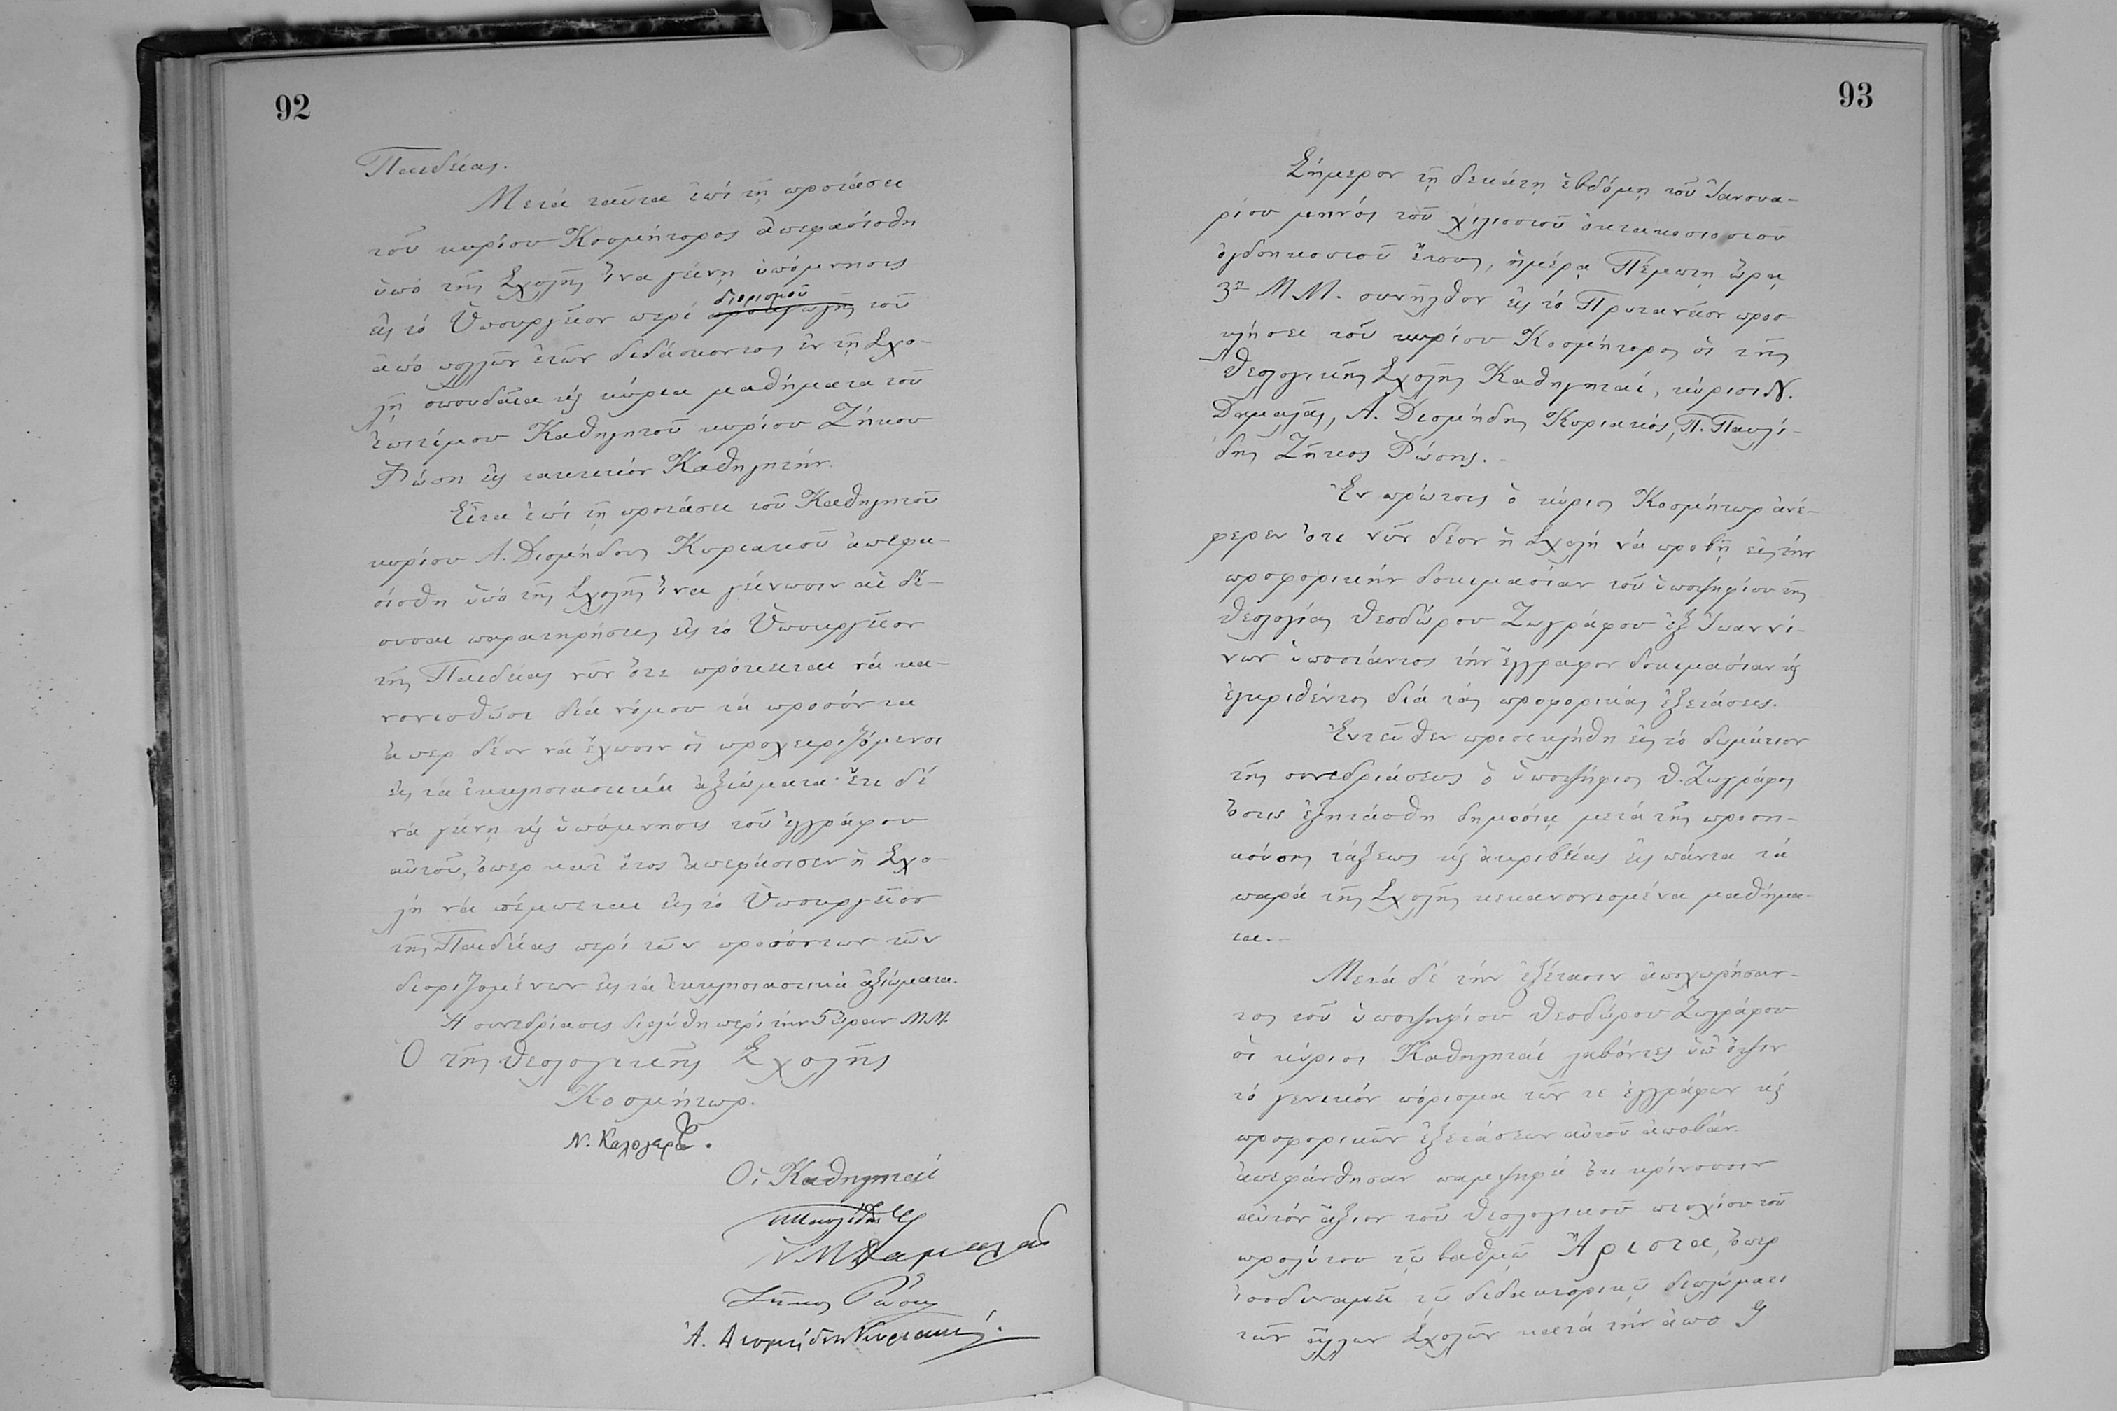 92
Παιδείας.
Μετά ταῦτα ἐπί τῇ προτάσει
τοῦ κυρίου Κοσμήτορος ἀπεφασίσθη
ὑπό τῆς Σχολῆς ἵνα γείνῃ ὑπόμνησις
εἰς τό Ὑπουργεῖον περί προαγωγῆς διορισμοῦ τοῦ
ἀπό πολλῶν ἐτῶν διδάσκοντος ἐν τῇ Σχο-
λῇ σπουδαῖα κ̀ κύρια μαθήματα τοῦ
ἐπιτίμου Καθηγητοῦ κυρίου Ζήκου
Ῥώση εἰς τακτικόν Καθηγητήν.
Εἶτα ἐπί τῇ προτάσει τοῦ Καθηγητοῦ
κυρίου Α. Διομήδους Κυριακοῦ ἀπεφα-
σίσθη ὑπό τῆς Σχολῆς ἵνα γείνωσιν αἱ δέ-
ουσαι παρατηρήσεις εἰς τό Ὑπουργεῖον
τῆς Παιδείας νῦν ὅτε πρόκειται νά κα-
νονισθῶσι διά νόμου τά προσόντα
ἅπερ δέον νά ἔχωσιν οἱ προχειριζόμενοι
εἰς τά ἐκκλησιαστικά ἀξιώματα· ἔτι δέ
νά γείνῃ κ̀ ὑπόμνησις τοῦ ἐγγράφου
αὐτοῦ, ὅπερ κατ' ἔτος ἀπεφάσισεν ἡ Σχο-
λή νά πέμπεται εἰς τό Ὑπουργεῖον
τῆς Παιδείας περί τῶν προσόντων τῶν
διοριζομένων εἰς τά ἐκκλησιαστικά ἀξιώματα.
Ἡ συνεδρίασις διελύθη περί τήν 5 ὥραν Μ.Μ.
Ὁ τῆς Θεολογικῆς Σχολῆς
Κοσμήτωρ.
Ν. Καλογερᾶς.
Οἱ Καθηγηταί
Π Παυλίδης
Ν Μ Δαμαλᾶς
Ζῆκος Ῥώσης
Ἀ. Διομήδης Κυριακός.
93
Σήμερον τῇ δεκάτῃ ἑβδόμῃ τοῦ Ἰανουα-
ρίου μηνός τοῦ χιλιοστοῦ ὀκτακοσιοστοῦ
ὀγδοηκοστοῦ ἔτους, ἡμέρᾳ Πέμπτῃ ὥρᾳ
3ῃ Μ.Μ. συνῆλθον εἰς τό Πρυτανεῖον προσ-
κλήσει τοῦ κυρίου Κοσμήτορος οἱ τῆς
Θεολογικῆς Σχολῆς Καθηγηταί, κύριοι Ν.
Δαμαλᾶς, Ἀ. Διομήδης Κυριακός, Π. Παυλί-
δης Ζῆκος Ῥώσης.
Ἐν πρώτοις ὁ κύριος Κοσμήτωρ ἀνέ-
φερεν ὅτι νῦν δέον ἡ Σχολή νά προβῇ εἰς τήν
προφορικήν δοκιμασίαν τοῦ ὑποψηφίου τῆς
Θεολογίας Θεοδώρου Ζωγράφου ἐξ Ἰωαννί-
νων ὑποστάντος τήν ἔγγραφον δοκιμασίαν κ̀
ἐγκριθέντος διά τάς προφορικάς ἐξετάσεις.
Ἐντεῦθεν προσεκλήθη εἰς τό δωμάτιον
τῆς συνεδριάσεως ὁ ὑποψήφιος Θ. Ζωγράφος
ὅστις ἐξητάσθη δημοσίᾳ μετά τῆς προση-
κούσης τάξεως κ̀ ἀκριβείας εἰς πάντα τά
παρά τῆς Σχολῆς κεκανονισμένα μαθήμα-
τα.-
Μετά δέ τήν ἐξέτασιν ἀποχωρήσαν-
τος τοῦ ὑποψηφίου Θεοδώρου Ζωγράφου
οἱ κύριοι Καθηγηταί λαβόντες ὑπ' ὄψιν
τό γενικόν πόρισμα τῶν τε ἐγγράφων κ̀
προφορικῶν ἐξετάσεων αὐτοῦ ἀποβάν.
ἀπεφάνθησαν παμψηφεί ὅτι κρίνουσιν
αὐτόν ἄξιον τοῦ Θεολογικοῦ πτυχίου τοῦ
προλύτου τῷ βαθμῷ Ἄριστα, ὅπερ
ἰσοδυναμεῖ τῷ διδακτορικῷ διπλώματι
τῶν ἄλλων Σχολῶν κατά τήν ἀπό 9